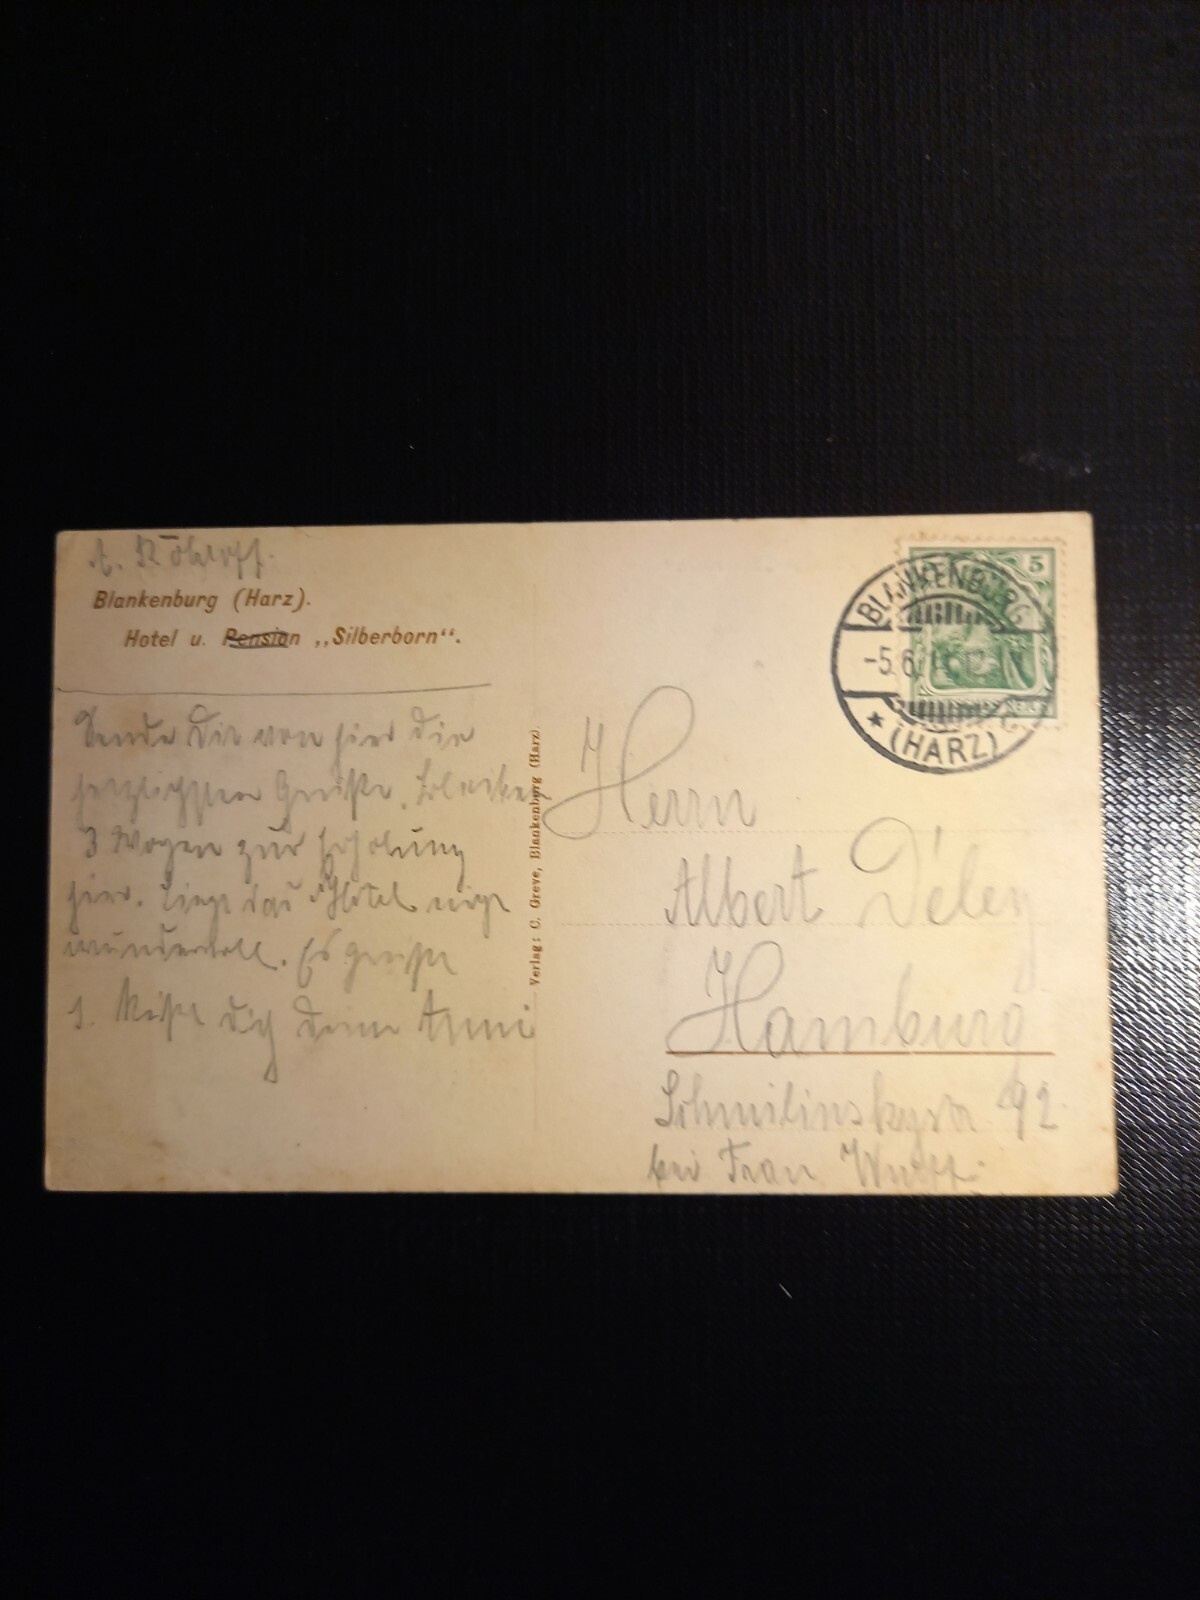 Blankenburg (Harz).
Hotel u. Pension „Silberborn“.
Sende Dir von hier die
herzlichsten Grüße, bleiben
3 Wochen zur Erholung
hier. Liegt das Hotel nicht
wundervoll. Es grüßt
u. küßt dich deine Anni
Verlag: C. Greve, Blankenburg (Harz).
5
BLANKENBURG
-5.6.
* (HARZ)
Herrn
Albert Déley
Hamburg
Schmilinskystr 92
bei Frau Wulff.